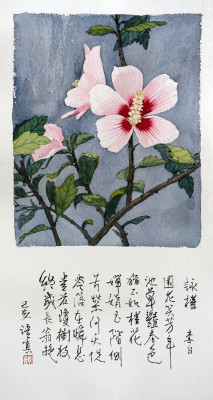 詠槿 李白
園花笑芳年
池草艷春色
猶不如槿花
嬋娟玉階側
芬榮何夭促
零落在瞬息
豈若瓊樹枝
終歲長翕赩
己亥